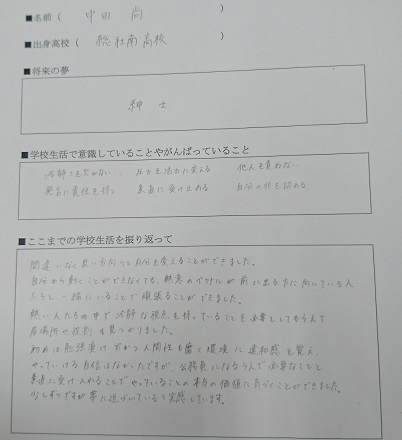 ■名前（ 中田 尚 ）
■出身高校（ 総社南高校 ）
■将来の夢
紳士
■学校生活で意識していることやがんばっていること
冷静さを欠かない 圧力を活力に変える 他人を責めない
発言に責任を持つ 素直に受け止める 自分の非を認める
■ここまでの学校生活を振り返って
間違いなく良い方向へと自分を変えることができました。
自分から動くことができなくても、熱意のベクトルが前に出る方に向いている人
たちと一緒にいることで頑張ることができました。
熱い人たちの中で冷静な視点を持っていることを必要としてもらえて
居場所や役割も見つかりました。
初めは勉強漬けかつ人間性も磨く環境に違和感を覚え、
やっていける自信はなかったですが、公務員になるうえで必要なことと
素直に受け入れることでやっていることの本当の価値に気づくことができました。
少しずつですが夢に近づいていると実感しています。